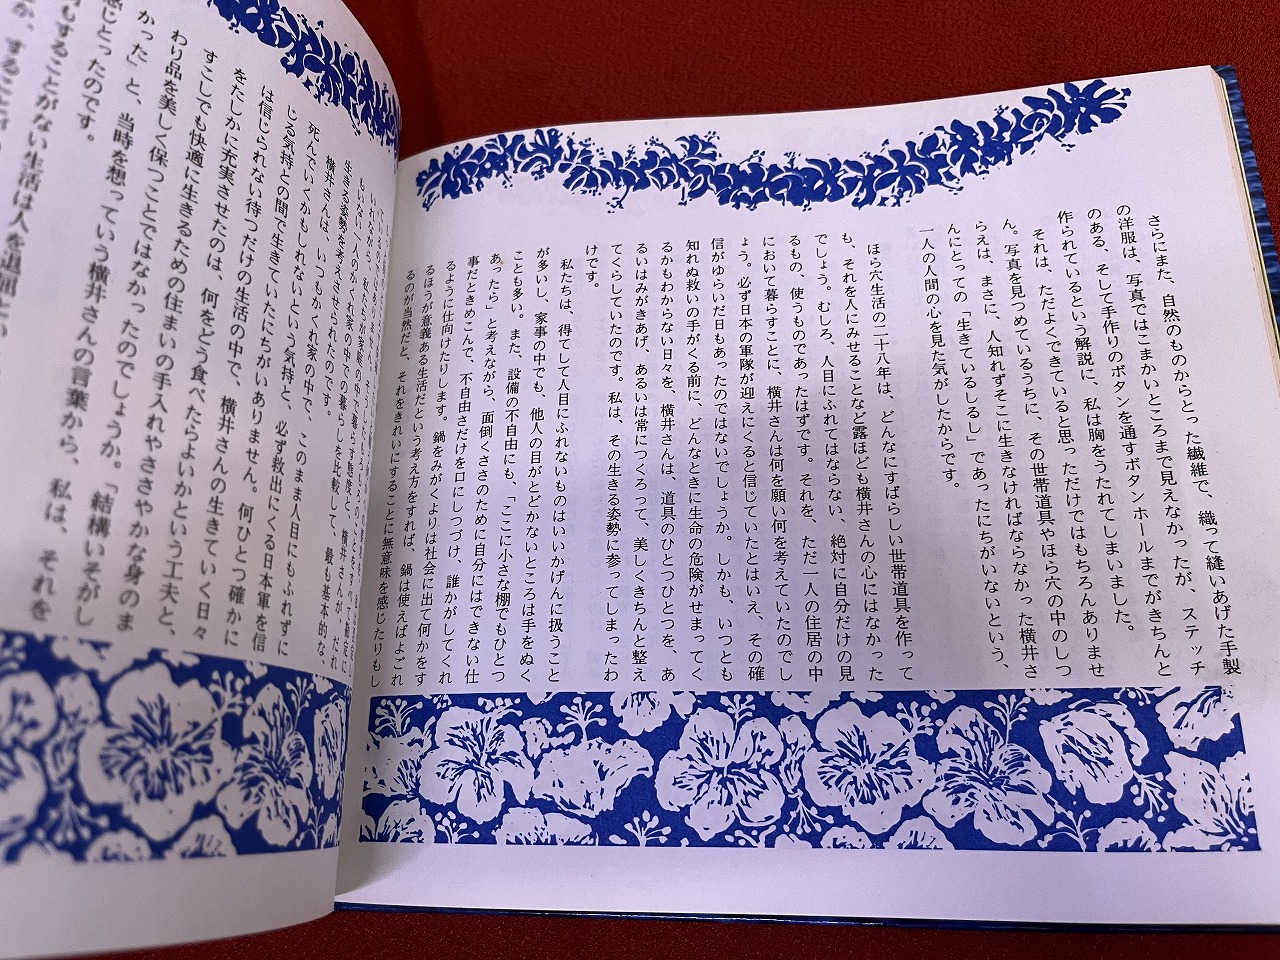 さらにまた、自然のものからとった繊維で、織って縫いあげた手製
の洋服は、写真ではこまかいところまで見えなかったが、ステッチ
のある、そして手作りのボタンを通すボタンホールまでがきちんと
作られているという解説に、私は胸をうたれてしまいました。
それは、ただよくできていると思っただけではもちろんありませ
ん。写真を見つめているうちに、その世帯道具やほら穴の中のしつ
らえは、まさに、人知れずそこに生きなければならなかった横井さ
んにとっての「生きているしるし」であったにちがいないという、
一人の人間の心を見た気がしたからです。
ほら穴生活の二十八年は、どんなにすばらしい世帯道具を作って
も、それを人にみせることなど露ほども横井さんの心にはなかった
でしょう。むしろ、人目にふれてはならない、絶対に自分だけの見
るもの、使うものであったはずです。それを、ただ一人の住居の中
において暮らすことに、横井さんは何を願い何を考えていたのでし
ょう。必ず日本の軍隊が迎えにくると信じていたとはいえ、その確
信がゆらいだ日もあったのではないでしょうか。しかも、いつとも
知れぬ救いの手がくる前に、どんなときに生命の危険がせまってく
るかもわからない日々を、横井さんは、道具のひとつひとつを、あ
るいはみがきあげ、あるいは常につくろって、美しくきちんと整え
てくらしていたのです。私は、その生きる姿勢に参ってしまったわ
けです。
私たちは、得てして人目にふれないものはいいかげんに扱うこと
が多いし、家事の中でも、他人の目がとどかないところは手をぬく
ことも多い。また、設備の不自由にも、「ここに小さな棚でもひとつ
あったら」と考えながら、面倒くささのために自分にはできない仕
事だときめこんで、不自由さだけを口にしつづけ、誰かがしてくれ
るように仕向けたりします。鍋をみがくよりは社会に出て何かをす
るほうが意義ある生活だという考え方をすれば、鍋は使えばよごれ
るのが当然だと、それをきれいにすることに無意味を感じたりもし
いれながら、私たちが家庭の中で暮らす態度と、横井さんが、だれ
もいない一人のかくれ家の中での暮らしを比較して、最も基本的な、
生きる姿勢を考えさせられたのです。
横井さんは、いつもかくれ家の中で、このまま人目にもふれずに
死んでいくかもしれないという気持と、必ず救出にくる日本軍を信
じる気持との間で生きていたにちがいありません。何ひとつ確かに
は信じられない待つだけの生活の中で、横井さんの生きていく日々
をたしかに充実させたのは、何をどう食べたらよいかという工夫と、
すこしでも快適に生きるための住まいの手入れやささやかな身のま
わり品を美しく保つことではなかったのでしょうか。「結構いそがし
かった」と、当時を想っていう横井さんの言葉から、私は、それを
感じとったのです。
もすることがない生活は人を退屈とい